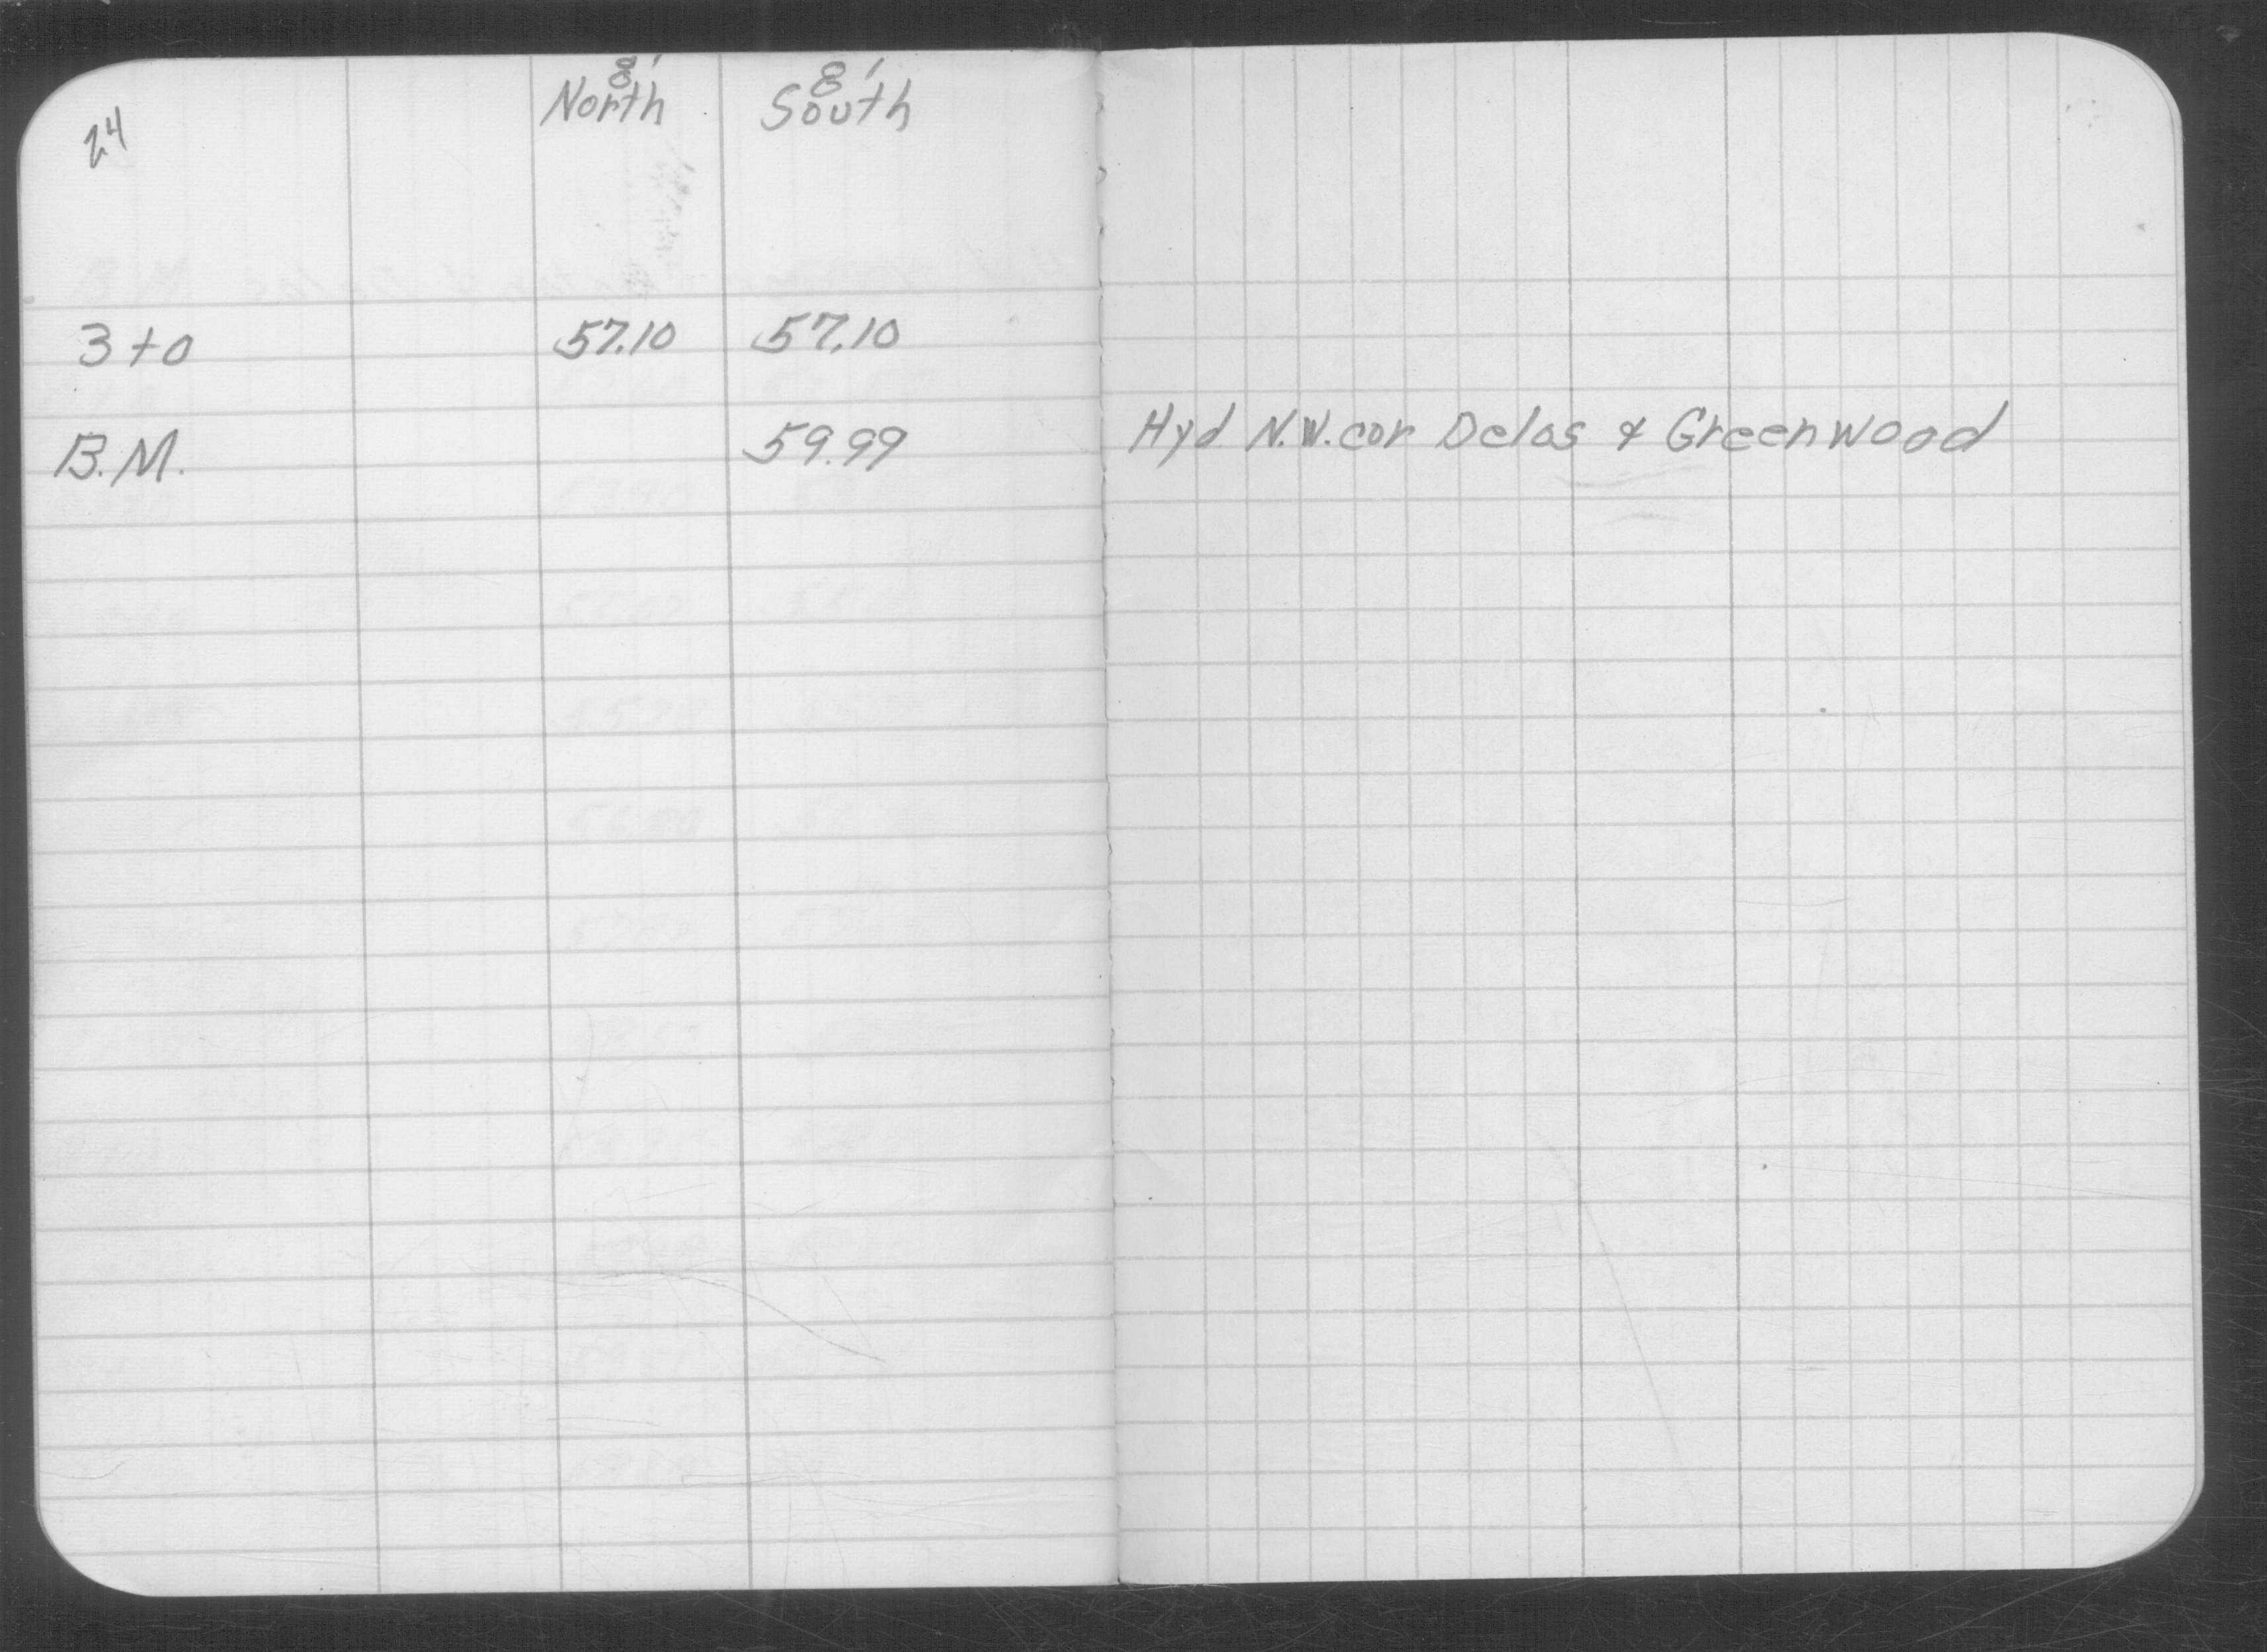 24
8' 8'
North South
3+0 57.10 57.10
B.M. 59.99 Hyd N.W. cor Delos & Greenwood